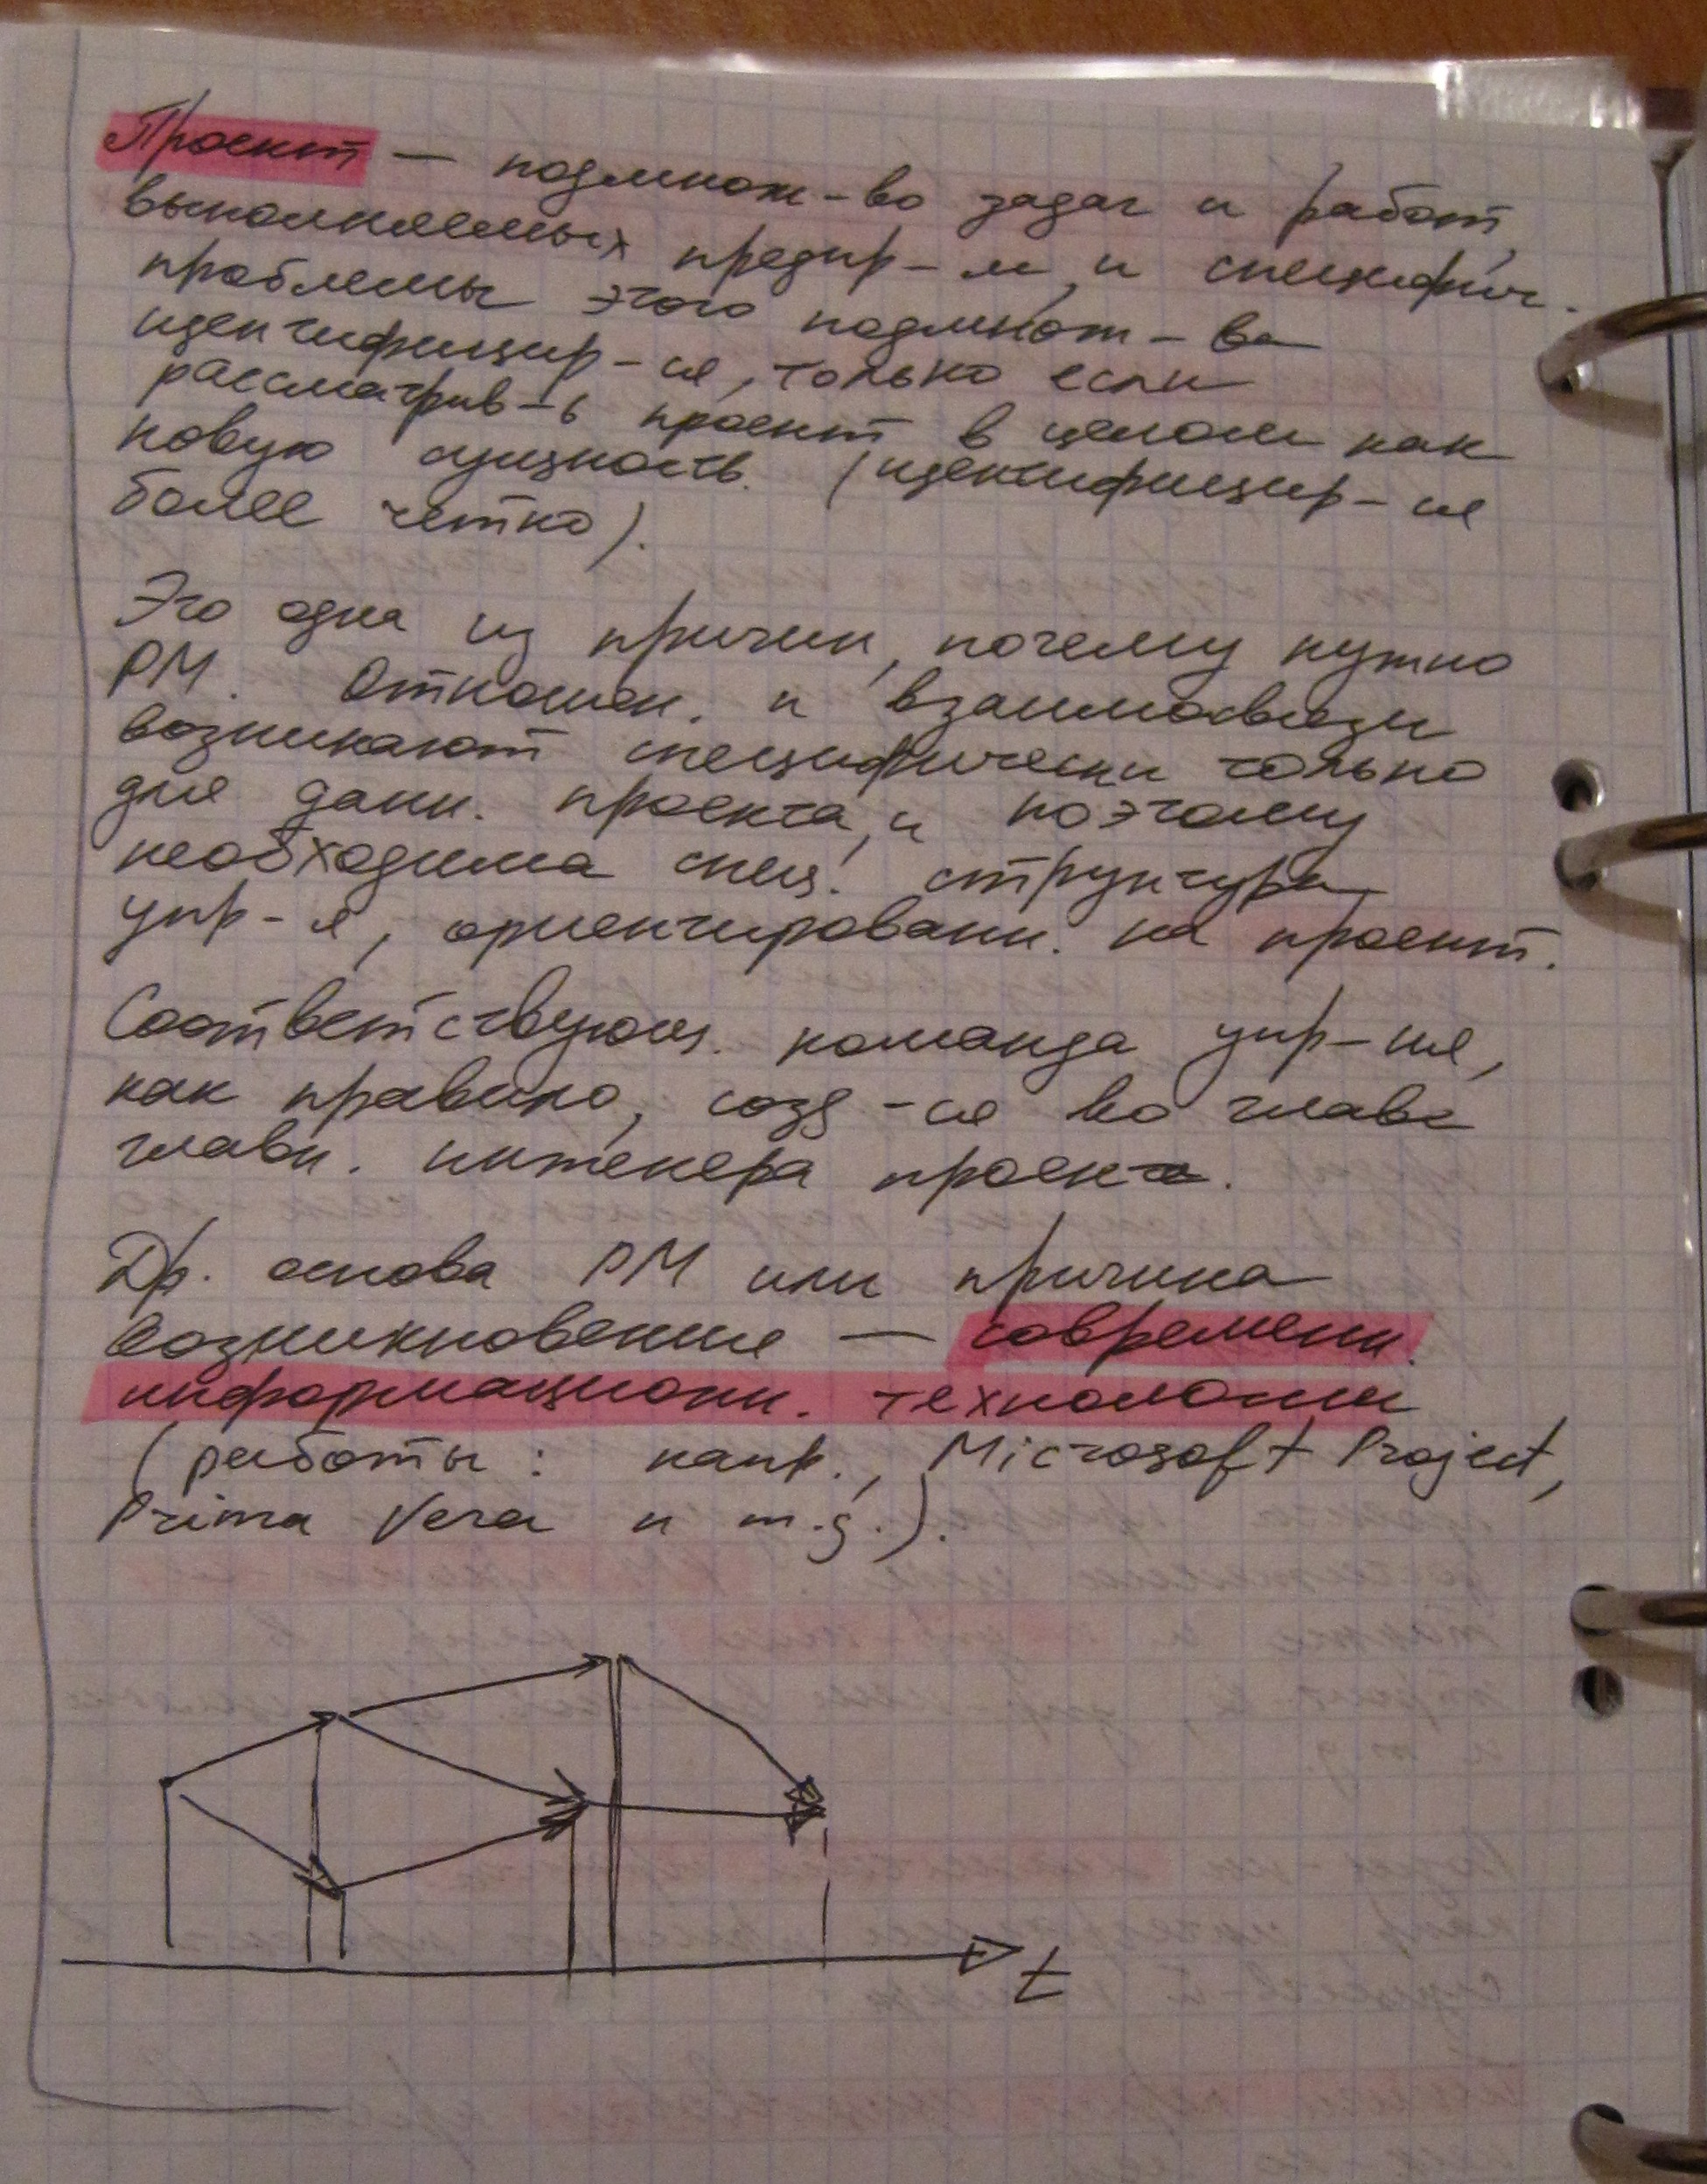 Проект — подмнож-во задач и работ,
выполняемых предпр-м, и специфич.
проблемы этого подмнож-ва
идентифицир-ся, только если
рассматрив-ь проект в целом как
новую сущность. (идентифицир-ся
более четко).
Это одна из причин, почему нужно
PM. Отношен. и взаимосвязи
возникают специфически только
для данн. проекта, и поэтому
необходима спец. структура
упр-я, ориентированн. на проект.
Соответствующ. команда упр-ия,
как правило, созд-ся во главе
главн. инженера проекта.
Др. основа PM или причина
возникновения — современн.
информационн. технологии
(работы: напр., Microsoft Project,
Prima Vera и т.д.).
t